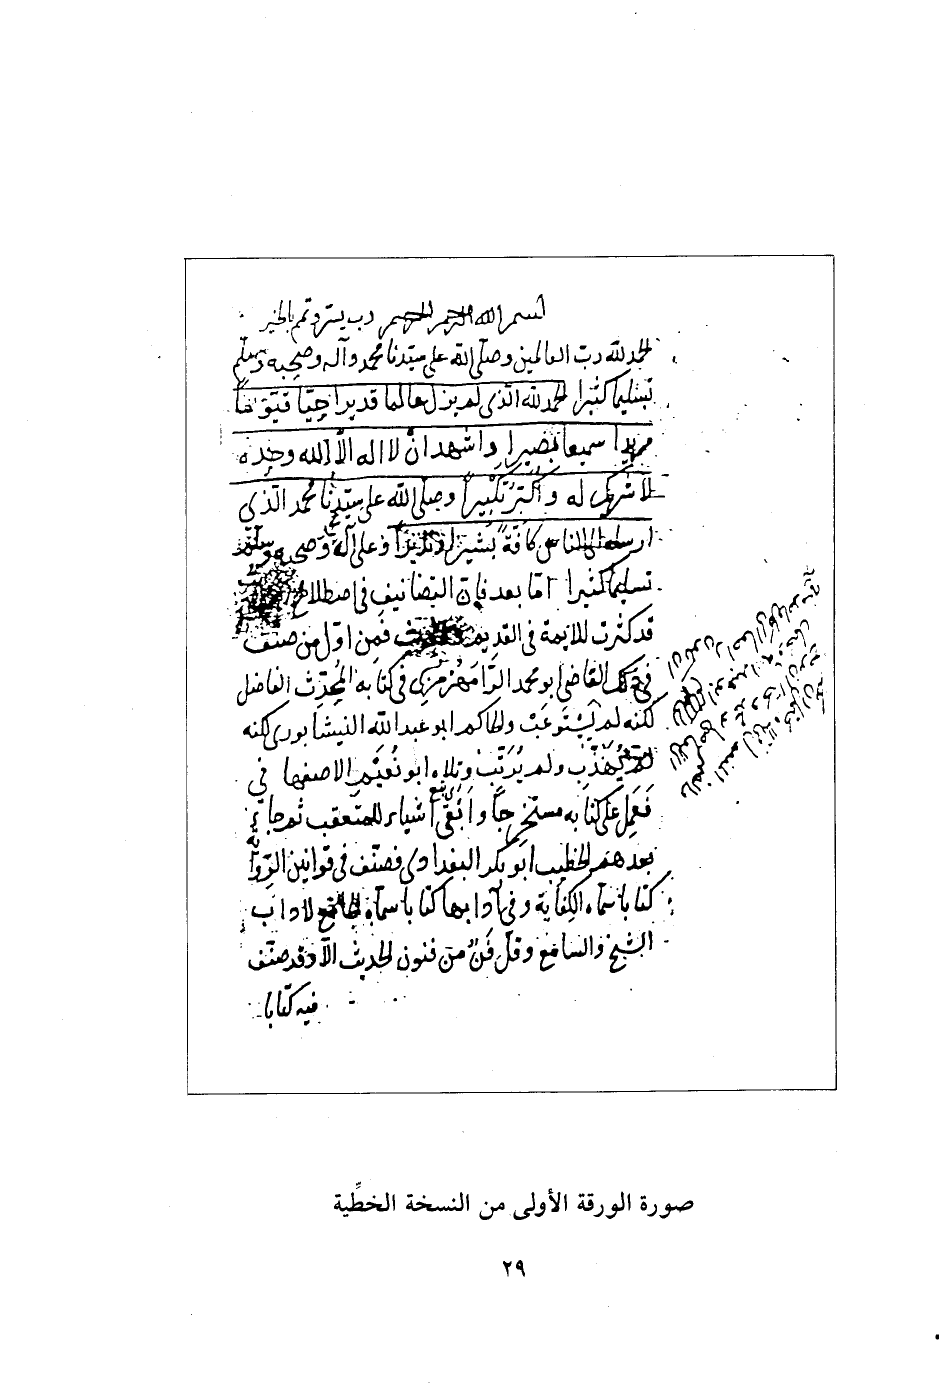 بسم الله الرحمن الرحيم رب يسر وتمم بالخير
الحمد لله رب العالمين وصلّى الله على سيّدنا محمد وآله وصحبه وسلّم
تسليما كثيرا الحمد لله الذى لم يزل عالما قديرا حيّا قيّوما
مريدا سميعا بصيرا واشهد ان لا اله الّا الله وحده
لا شريك له واكبّره تكبيرا وصلّى الله على سيّدنا محمد الّذى
ارسله الى الناس كافة بشيرا ونذيرا وعلى آله وصحبه وسلّم
تسليما كثيرا امّا بعد فان التصانيف فى اصطلاح
قد كثرت للايمة فى القديم والحديث فمن اوّل من صنّف
فى ذلك القاضى ابو محمد الرّامهرمزى فى كتابه المحدّث الفاضل
لكنه لم يستوعب والحاكم ابو عبد الله النيشابورى لكنه
لم يهذّب ولم يرتّب وتلاه ابو نعيم الاصفهانى
فعمل على كتابه مستخرجا وابقى اشياء للمتعقب ثم جاء
بعدهم الخطيب ابو بكر البغدادى فصنّف فى قوانين الرّواية
كتابا سماه الكفاية وفى آدابها كتابا سماه الجامع لاداب
الشيخ والسامع وقلّ فنّ من فنون الحديث الّا وقد صنّف
فيه كتابا
صورة الورقة الأولى من النسخة الخطِّية
٢٩